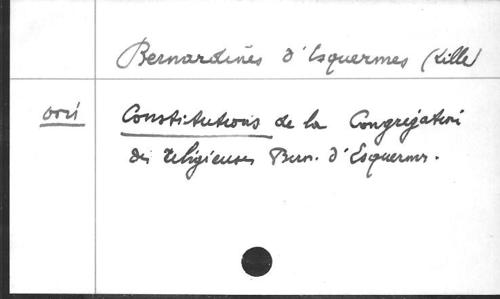 Bernardines d'Esquermes (Lille)
Constitutions de la Congrégation
des religieuses Bern. d'Esquermes.